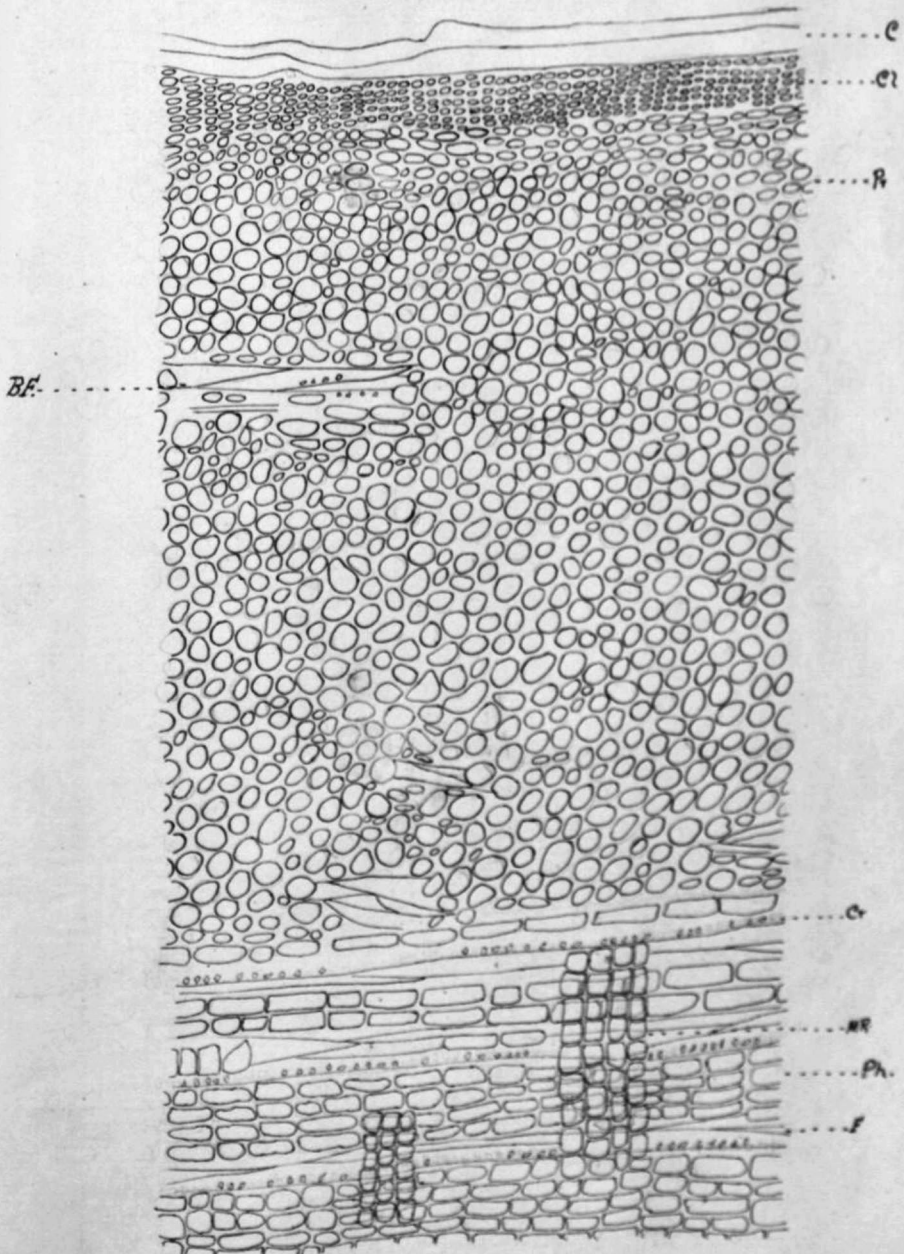 C
Cl
Pr
BF.
Cr
MR
Ph.
F